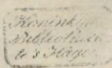 Konink
Bibliotheek
te s Hage